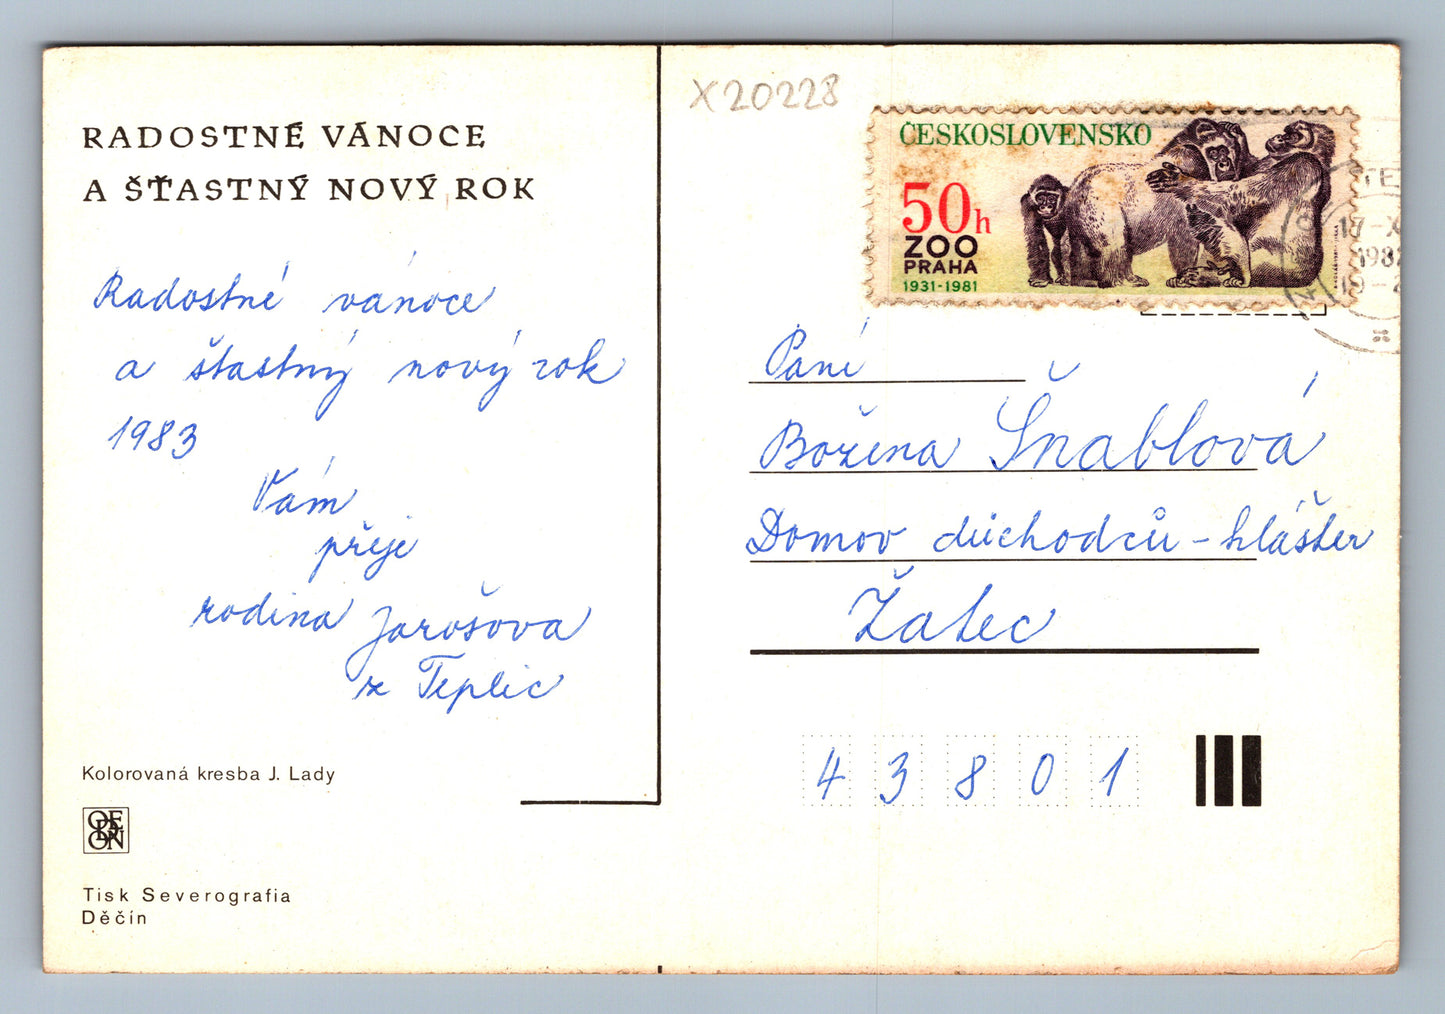 RADOSTNÉ VÁNOCE
A ŠŤASTNÝ NOVÝ ROK
Radostné vánoce
a šťastný nový rok
1983
Vám
přeje
rodina Jarošova
z Teplic
Kolorovaná kresba J. Lady
ODEON
Tisk Severografia
Děčín
X20228
ČESKOSLOVENSKO
50h
ZOO
PRAHA
1931-1981
17-X
1982
Paní
Božena Šnáblová
Domov důchodců - klášter
Žatec
43801